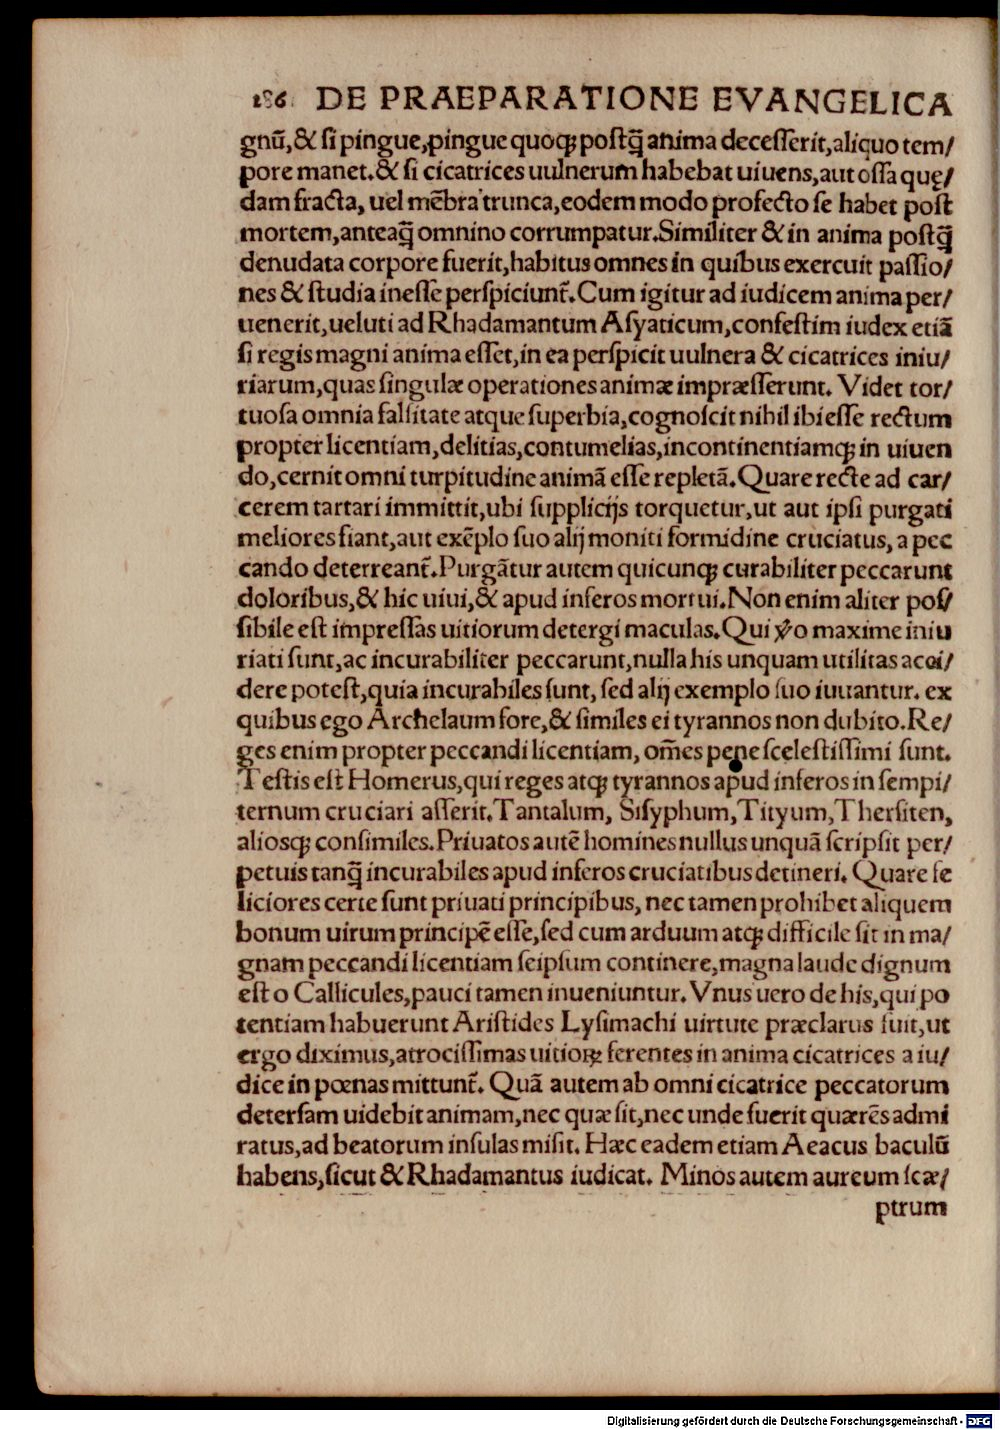 186 DE PRAEPARATIONE EVANGELICA
gnũ,& ſi pingue,pingue quoqꝫ poſtq̃ anima deceſſerit,aliquo tem/
pore manet.& ſi cicatrices uulnerum habebat uiuens,aut oſſa quę/
dam fracta, uel mẽbra trunca,eodem modo profecto ſe habet poſt
mortem,anteaq̃ omnino corrumpatur.Similiter & in anima poſtq̃
denudata corpore fuerit,habitus omnes in quibus exercuit paſſio/
nes & ſtudia ineſſe perſpiciunt̃.Cum igitur ad iudicem anima per/
uenerit,ueluti ad Rhadamantum Aſyaticum,confeſtim iudex etiã
ſi regis magni anima eſſet,in ea perſpicit uulnera & cicatrices iniu/
riarum,quas ſingulæ operationes animæ impræſſerunt. Videt tor/
tuoſa omnia falſitate atque ſuperbia,cognoſcit nihil ibi eſſe rectum
propter licentiam,delitias,contumelias,incontinentiamqꝫ in uiuen
do,cernit omni turpitudine animã eſſe repletã.Quare recte ad car/
cerem tartari immittit,ubi ſupplicijs torquetur,ut aut ipſi purgati
meliores fiant,aut exẽplo ſuo alij moniti formidine cruciatus, a pec
cando deterreant̃.Purgãtur autem quicunqꝫ curabiliter peccarunt
doloribus,& hic uiui,& apud inferos mortui.Non enim aliter poſ/
ſibile eſt impreſſas uitiorum detergi maculas.Qui ꝟo maxime iniu
riati ſunt,ac incurabiliter peccarunt,nulla his unquam utilitas acci/
dere poteſt,quia incurabiles ſunt, ſed alij exemplo ſuo iuuantur. ex
quibus ego Archelaum fore,& ſimiles ei tyrannos non dubito.Re/
ges enim propter peccandi licentiam, om̃es pene ſceleſtiſſimi ſunt.
Teſtis eſt Homerus,qui reges atqꝫ tyrannos apud inferos in ſempi/
ternum cruciari aſſerit.Tantalum, Siſyphum,Tityum,Therſiten,
alioſqꝫ conſimiles.Priuatos autẽ homines nullus unquã ſcripſit per/
petuis tanq̃ incurabiles apud inferos cruciatibus detineri. Quare fe
liciores certe ſunt priuati principibus, nec tamen prohibet aliquem
bonum uirum principẽ eſſe,ſed cum arduum atqꝫ difficile ſit in ma/
gnam peccandi licentiam ſeipſum continere,magna laude dignum
eſt o Callicules,pauci tamen inueniuntur. Vnus uero de his,qui po
tentiam habuerunt Ariſtides Lyſimachi uirtute præclarus fuit,ut
ergo diximus,atrociſſimas uitioꝝ ferentes in anima cicatrices a iu/
dice in pœnas mittunt̃. Quã autem ab omni cicatrice peccatorum
deterſam uidebit animam,nec quæ ſit,nec unde fuerit quærẽs admi
ratus,ad beatorum inſulas miſit. Hæc eadem etiam Aeacus baculũ
habens,ſicut & Rhadamantus iudicat. Minos autem aureum ſcæ/
ptrum
Digitalisierung gefördert durch die Deutsche Forschungsgemeinschaft - DFG